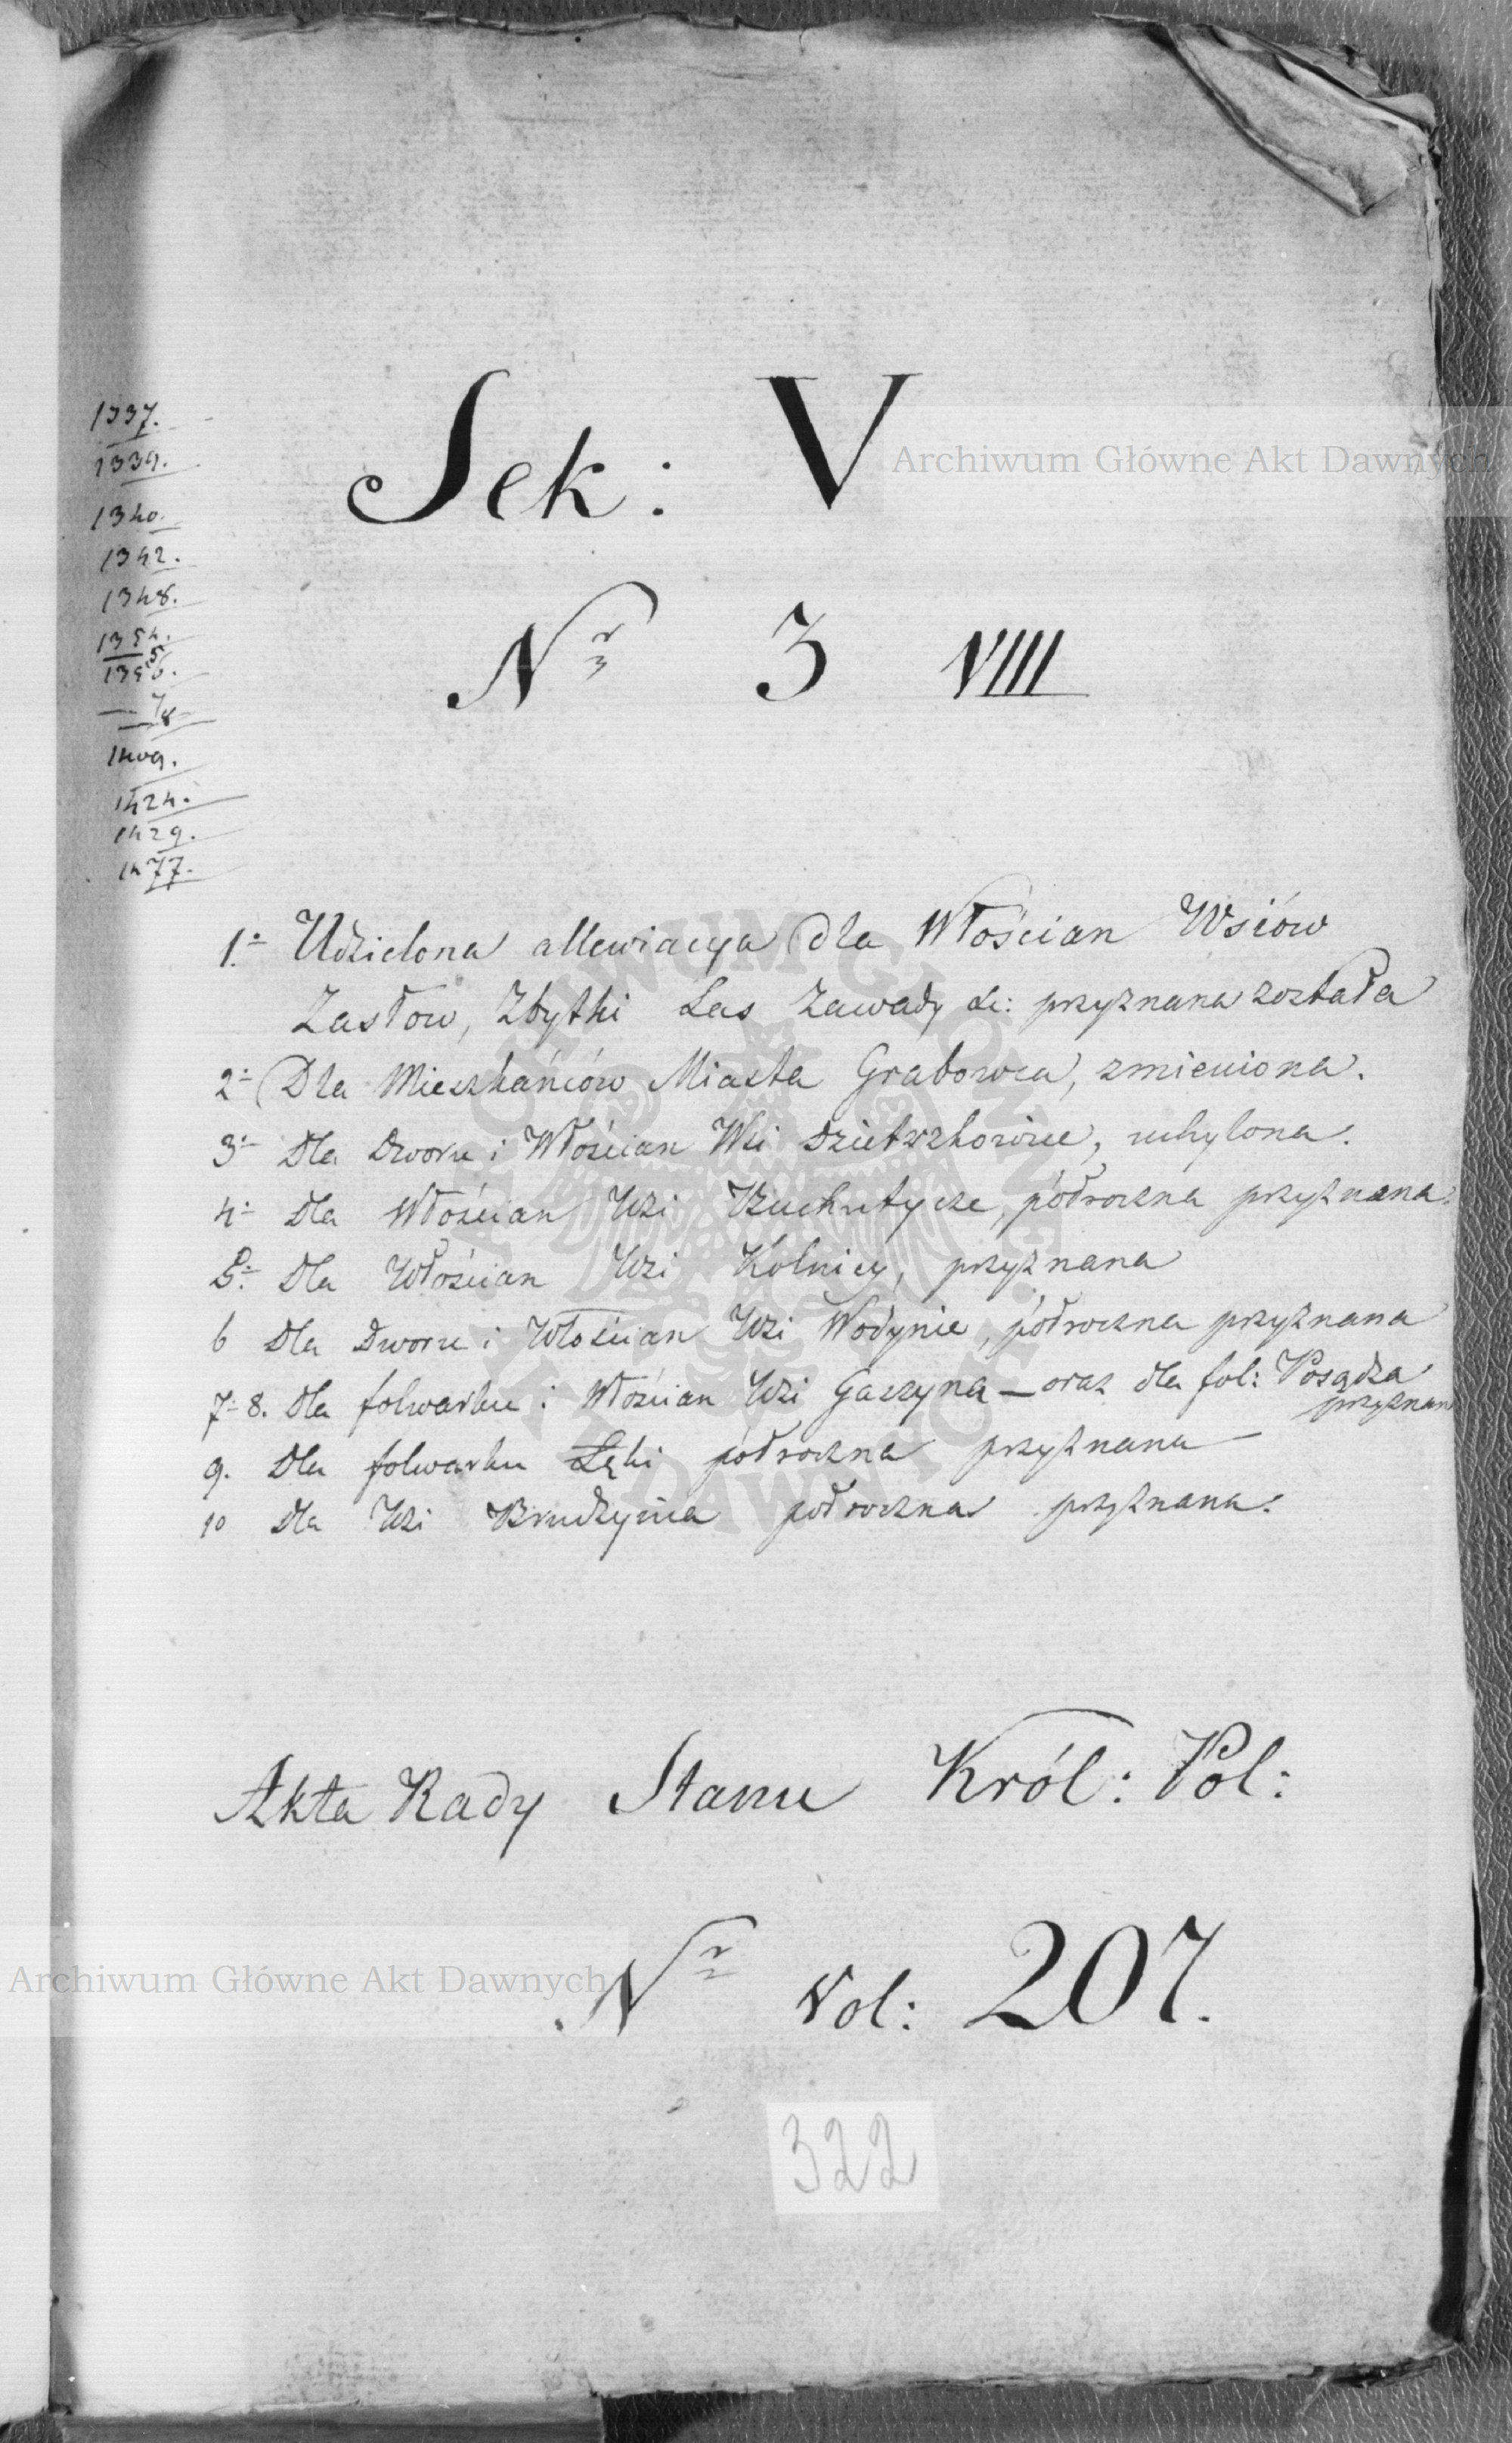 1337.
1339.
1340.
1342.
1348.
1354.
1356.
7
8
1409.
1424.
1429.
1477.
Sek: V
Nr 3 VIIII
Archiwum Główne Akt Dawnych
1. Udzielona allewiacya dla Włościan Wsiów
Zastow, Zbytki Las Zawady &c: przyznana została
2 Dla Mieszkańców Miasta Grabowca, zmieniona.
3 Dla Dworu i Włościan Wsi uchylona.
4 Dla Włościan Wsi półroczna przyznana.
5. Dla Włościan Wsi Kolnicy, przyznana
6 Dla Dworu i Włościan Wsi Wodynie, półroczna przyznana
7-8. dla folwarku i Włościan Wsi Gaszyna — oraz dla fol: Posądza
przyznan
9. Dla folwarku Łęki półroczna przyznana
10 Dla Wsi Brudzynia półroczna przyznana.
Akta Rady Stanu Król: Pol:
Archiwum Główne Akt Dawnych
Nr Vol: 207.
322
ARCHIWUM GŁÓWNE AKT DAWNYCH